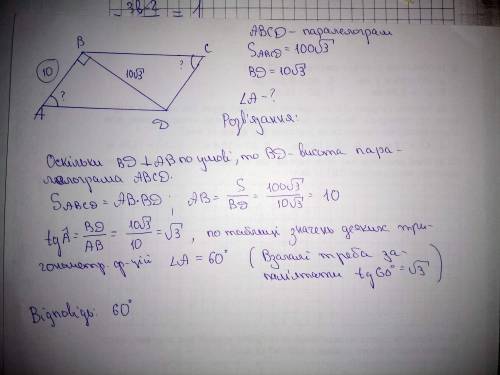 38·2 = 1
ABCD – паралелограм
S ABCD = 100√3
BD = 10√3
∠A – ?
B
C
10
10√3
?
?
A
D
Розв'язання:
Оскільки BD ⊥ AB по умові, то BD – висота пара-
лелограма ABCD.
S ABCD = AB·BD; AB = S/BD = 100√3/10√3 = 10
tg A = BD/AB = 10√3/10 = √3, по таблиці значень деяких три-
гонометр. ф-цій ∠A = 60° (Взагалі треба за-
пам'ятати tg 60° = √3)
Відповідь: 60°